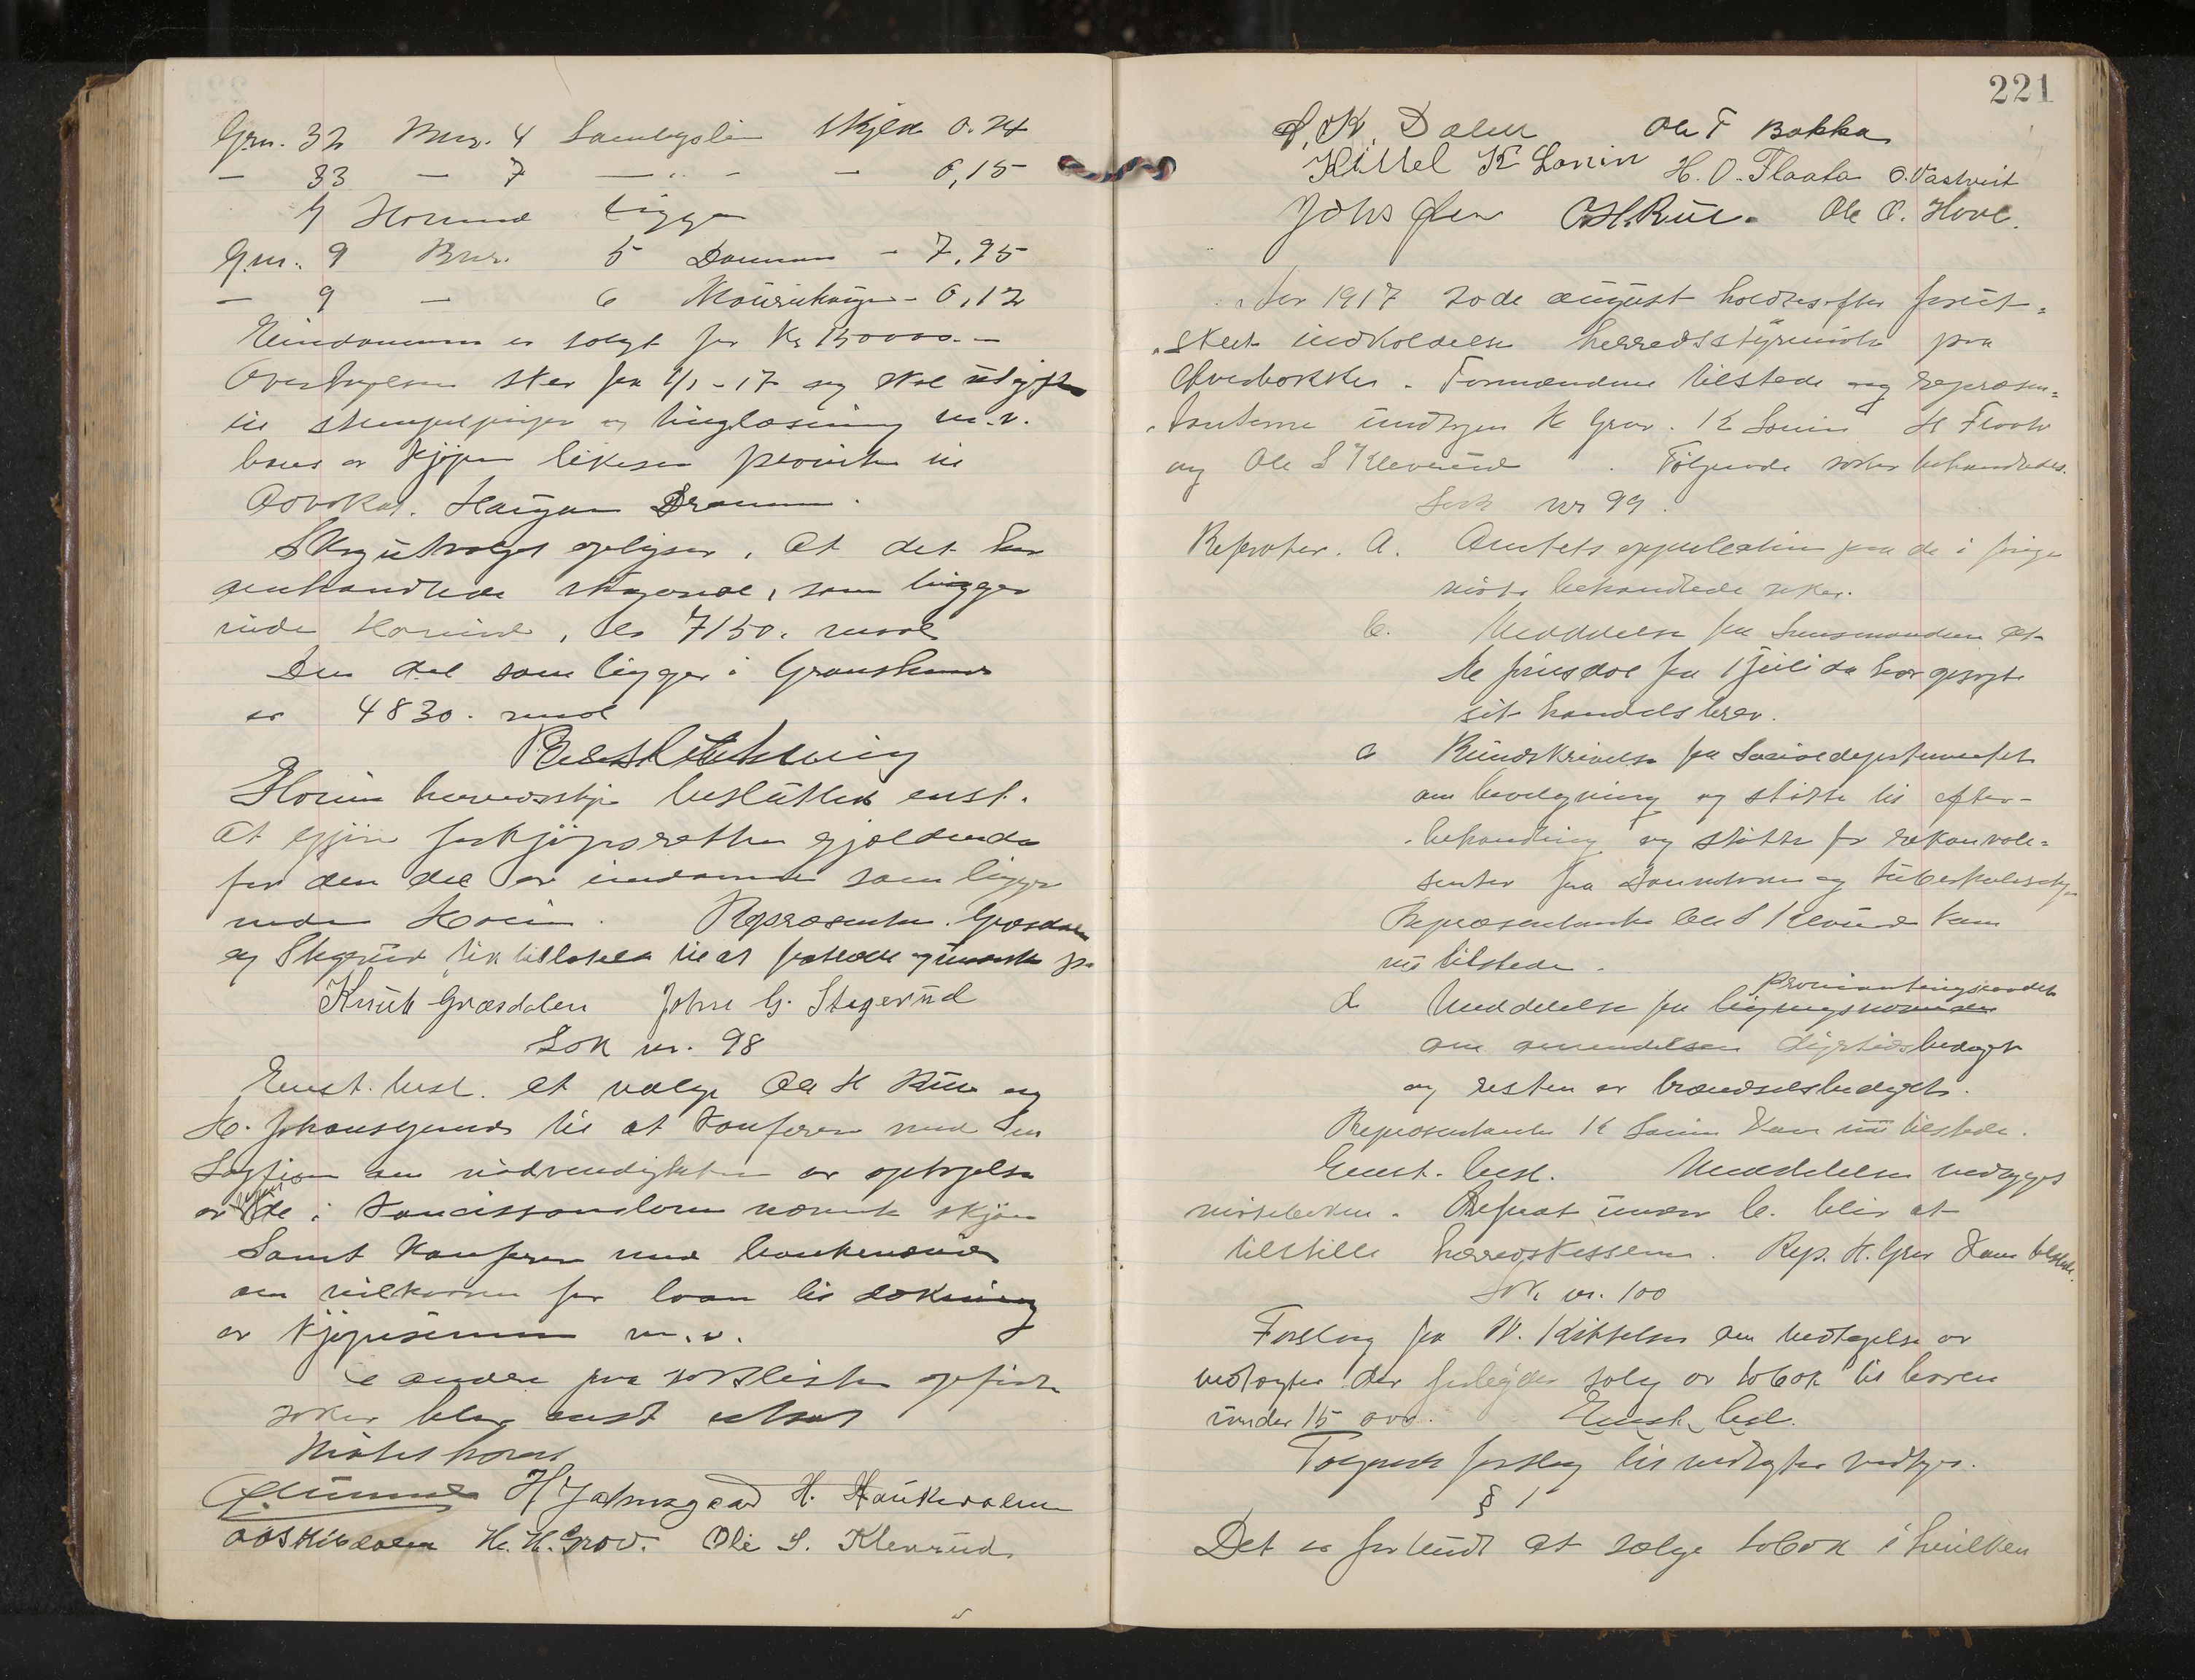 Grn. 32 Bnr. 4 skyld 0.24
— 33 — 7 — " — — 0,15
I Hovind ligger
Gnr. 9 Bnr. 5 — 7,95
— 9 — 6 — 0,12
Eiendommen er solgt for Kr 150000.—
Overtagelsen sker fra 1/1-17 og skal utgifter
til stempelpenger og tinglæsning m.v.
bæres av kjøper likesaa provision til
Advokat. Haugan Drammen.
Skogutvalget oplyser, at det her
omhandlede skogareal, som ligger
under, er 7150. maal
Den del som ligger i Gransherred
er 4830. maal
Beslutning
herredsstyre besluttet enst.
at gjøre forkjøpsretten gjældende
for den del av eiendommen som ligger
under. Repræsentr. Græsdalen
og Stegerud fik tillatelse til at fratræde
Knut Græsdalen John G. Stegerud
Sak nr. 98
Enst. besl. at vælge Ole H Rue og
H. Johansgaard til at konferere med
om nødvendigheten av optagelse
av de i nævnte skjøn
Samt konferere med
om vilkaarene for laan til dækning
av kjøpesummen m.v.
De andre paa sakslisten opførte
saker blev enst utsat
Møtet hævet
H Jahnsgaard H. Haukedalen
Aaskisdalen H. H. Grov. Ole S. Kleverud
221
S. K. Dalen Ole T Bakka
Kittel K Lonin H. O. Flaata O. Vastveit
Johs Øen O.H. Rue. Ole O. Hove.
Aar 1917 20de august holdtes efter forut=
skeet indkaldelse herredsstyremøte paa
. Formændene tilstede og repræsen=
tanterne undtagen H Grov. K Lonin H Flaata
og Ole S Kleverud. Følgende saker behandledes.
Sak nr 99.
Referater. a. Amtets approbation paa de i forrige
møte behandlede saker.
b. Meddelelse fra Lensmanden at
fra 1 juli da har opsagt
sit handelsbrev.
c Rundskrivelse fra Socialdepartementet
om bevilgning og støtte til efter-
behandling og støtte for rekonvale=
senter fra og tuberkulosehj.
Repræsentanten Ole S Kleverud kom
nu tilstede.
d Meddelelse fra Provianteringsraadet
om anvendelsen dyrtidsbidraget
og resten av brændselsbidraget.
Repræsentanten K Lonin kom nu tilstede.
Enst. besl. Meddelelsen vedlægges
møteboken. Referat under b. blir at
tilstille herredskasseren. Rep. H. Grov kom tilstede.
Sak nr. 100
Forslag fra N. Kittelsen om vedtagelse av
vedtægter der forbyder salg av tobak til barn
under 15 aar. Enst. besl.
Følgende forslag til vedtægter vedtages.
§ 1
Det er forbudt at sælge tobak i hvilken